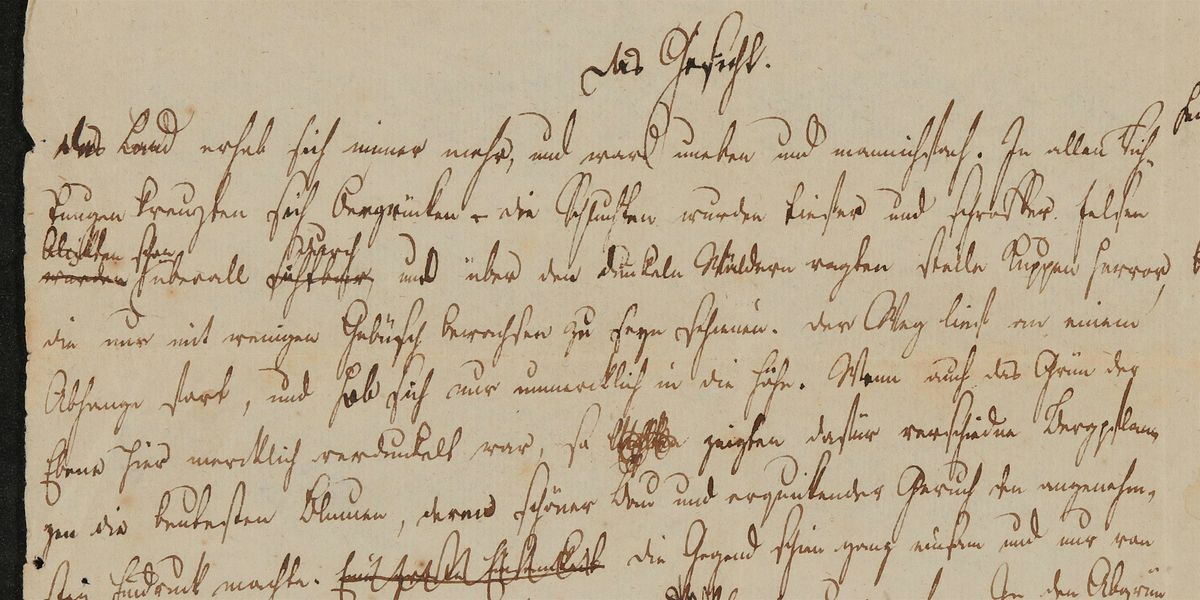 Das Gesicht.
Das Land erhob sich immer mehr, und ward uneben und mannichfach. In allen Rich-
tungen kreuzten sich Bergrücken - die Schluften wurden tiefer und schroffer. Felsen
blickten schon durch
wurden überall sichtbar und über den dunkeln Wäldern ragten steile Kuppen hervor,
die nur mit wenigen Gebüsch bewachsen zu seyn schienen. Der Weg lief an einem
Abhange fort, und hob sich nur unmercklich in die Höhe. Wenn auch das Grün der
Ebene hier mercklich verdunkelt war, so zeigten dafür verschiedne Bergpflan-
zen die buntesten Blumen, deren schöner Bau und erquickender Geruch den angenehm-
sten Eindruck machte. die Gegend schien ganz einsam und nur von
In den Abgrün